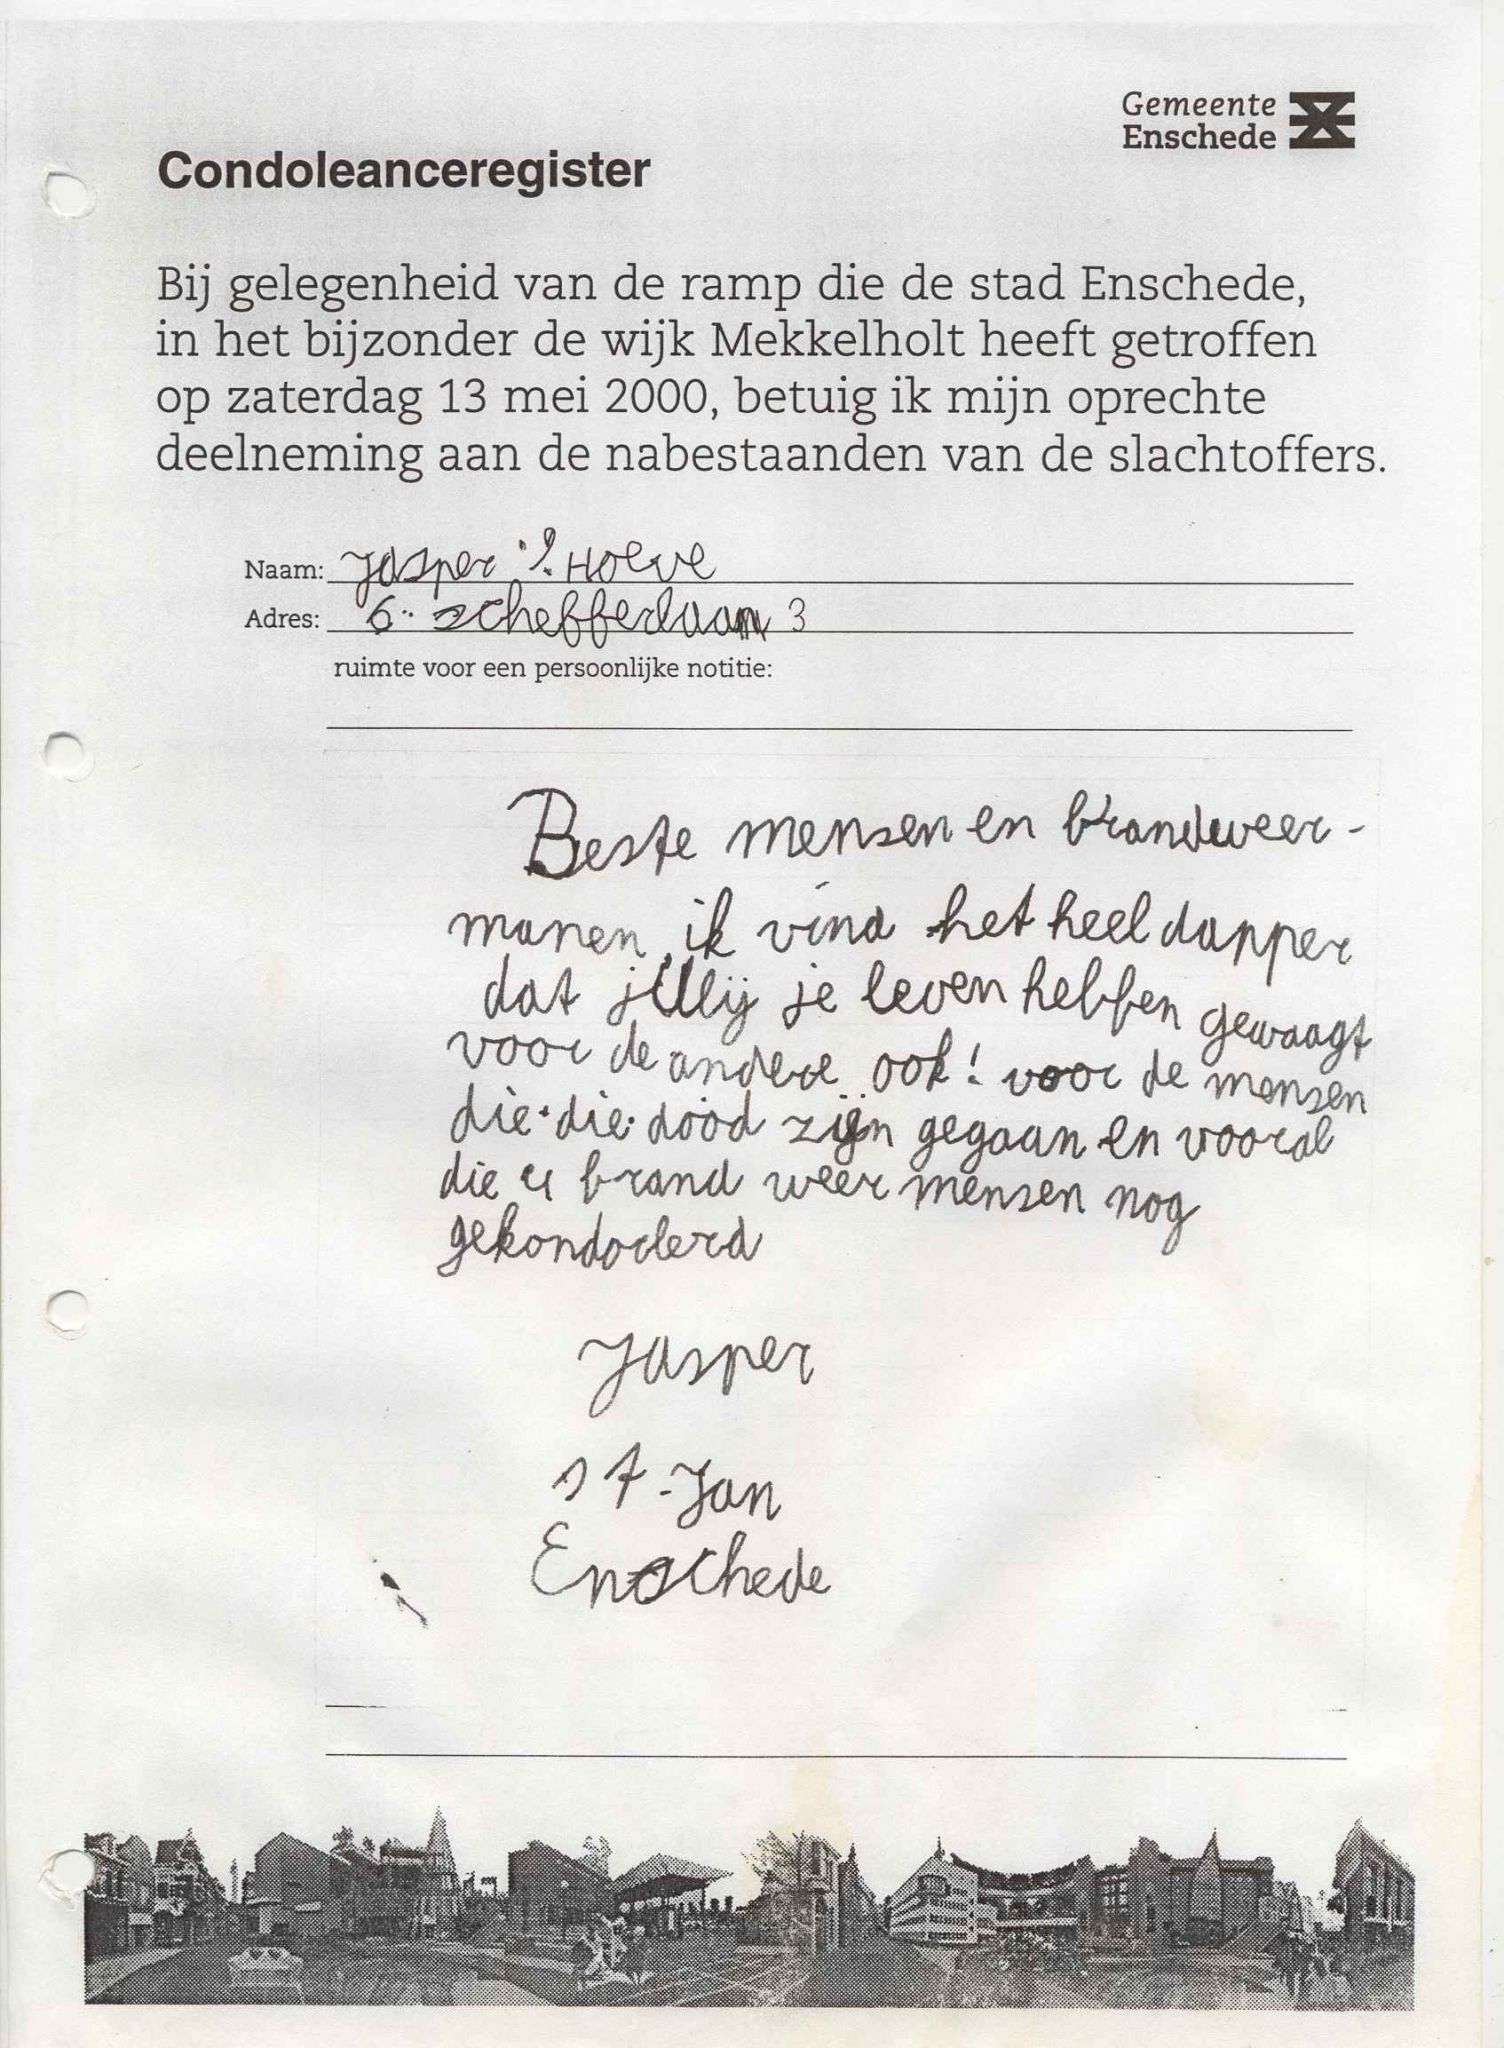 Gemeente
Enschede
Condoleanceregister
Bij gelegenheid van de ramp die de stad Enschede,
in het bijzonder de wijk Mekkelholt heeft getroffen
op zaterdag 13 mei 2000, betuig ik mijn oprechte
deelneming aan de nabestaanden van de slachtoffers.
Naam: Jasper 't Hoeve
Adres: G. schefferlaan 3
ruimte voor een persoonlijke notitie:
Beste mensen en brandweer-
manen, ik vind het heel dapper
dat jullij je leven hebben gewaagt
voor de andere ook! voor de mensen
die die dood zijn gegaan en vooral
die 4 brand weer mensen nog
gekondoclerd
Jasper
st-Jan
Enschede